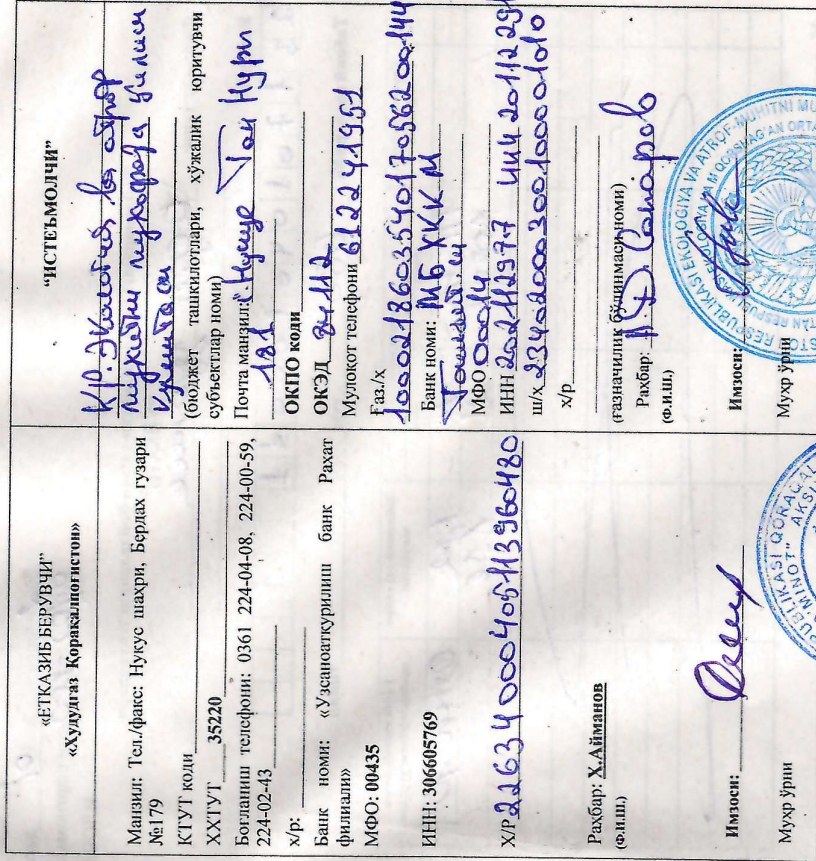 «ЕТКАЗИБ БЕРУВЧИ"
«Худудгаз Қорақалпоғистон»
Манзил: Тел./факс: Нукус шахри, Бердах гузари
№179
КТУТ коди
ХХТУТ 35220
Богланиш телефони: 0361 224-04-08, 224-00-59,
224-02-43
х/р:
Банк номи: «Узсаноаткурилиш банк Рахат
филиали»
МФО: 00435
ИНН: 306605769
Х/Р 22634000405113960480
Раҳбар: Х.Айманов
(Ф.И.Ш.)
Имзоси:
Муҳр ўрни
PUBLIKASI QORAQAL
MINOT" AKSI
“ИСТЕЪМОЛЧИ”
Қ.Р. Экология ва атроф
муҳитни муҳофаза қилиш
(бюджет ташкилотлари, хўжалик юритувчи
субъектлар номи)
Почта манзил: Нукус
181
ОКПО коди
ОКЭД 84112
Мулоқот телефони 612241951
Ғаз./х
100021860354017056200144
Банк номи: МБ ХККМ
Тошкент ш
МФО 00014
ИНН 202112977 201122
ш/х 23402000300100001010
х/р
(ғазначилик бўлинмаси номи)
Раҳбар:
(Ф.И.Ш.)
Имзоси:
Муҳр ўрни
RESPUBLIKASI EKOLOGIYA VA ATROF-MUHITNI MU